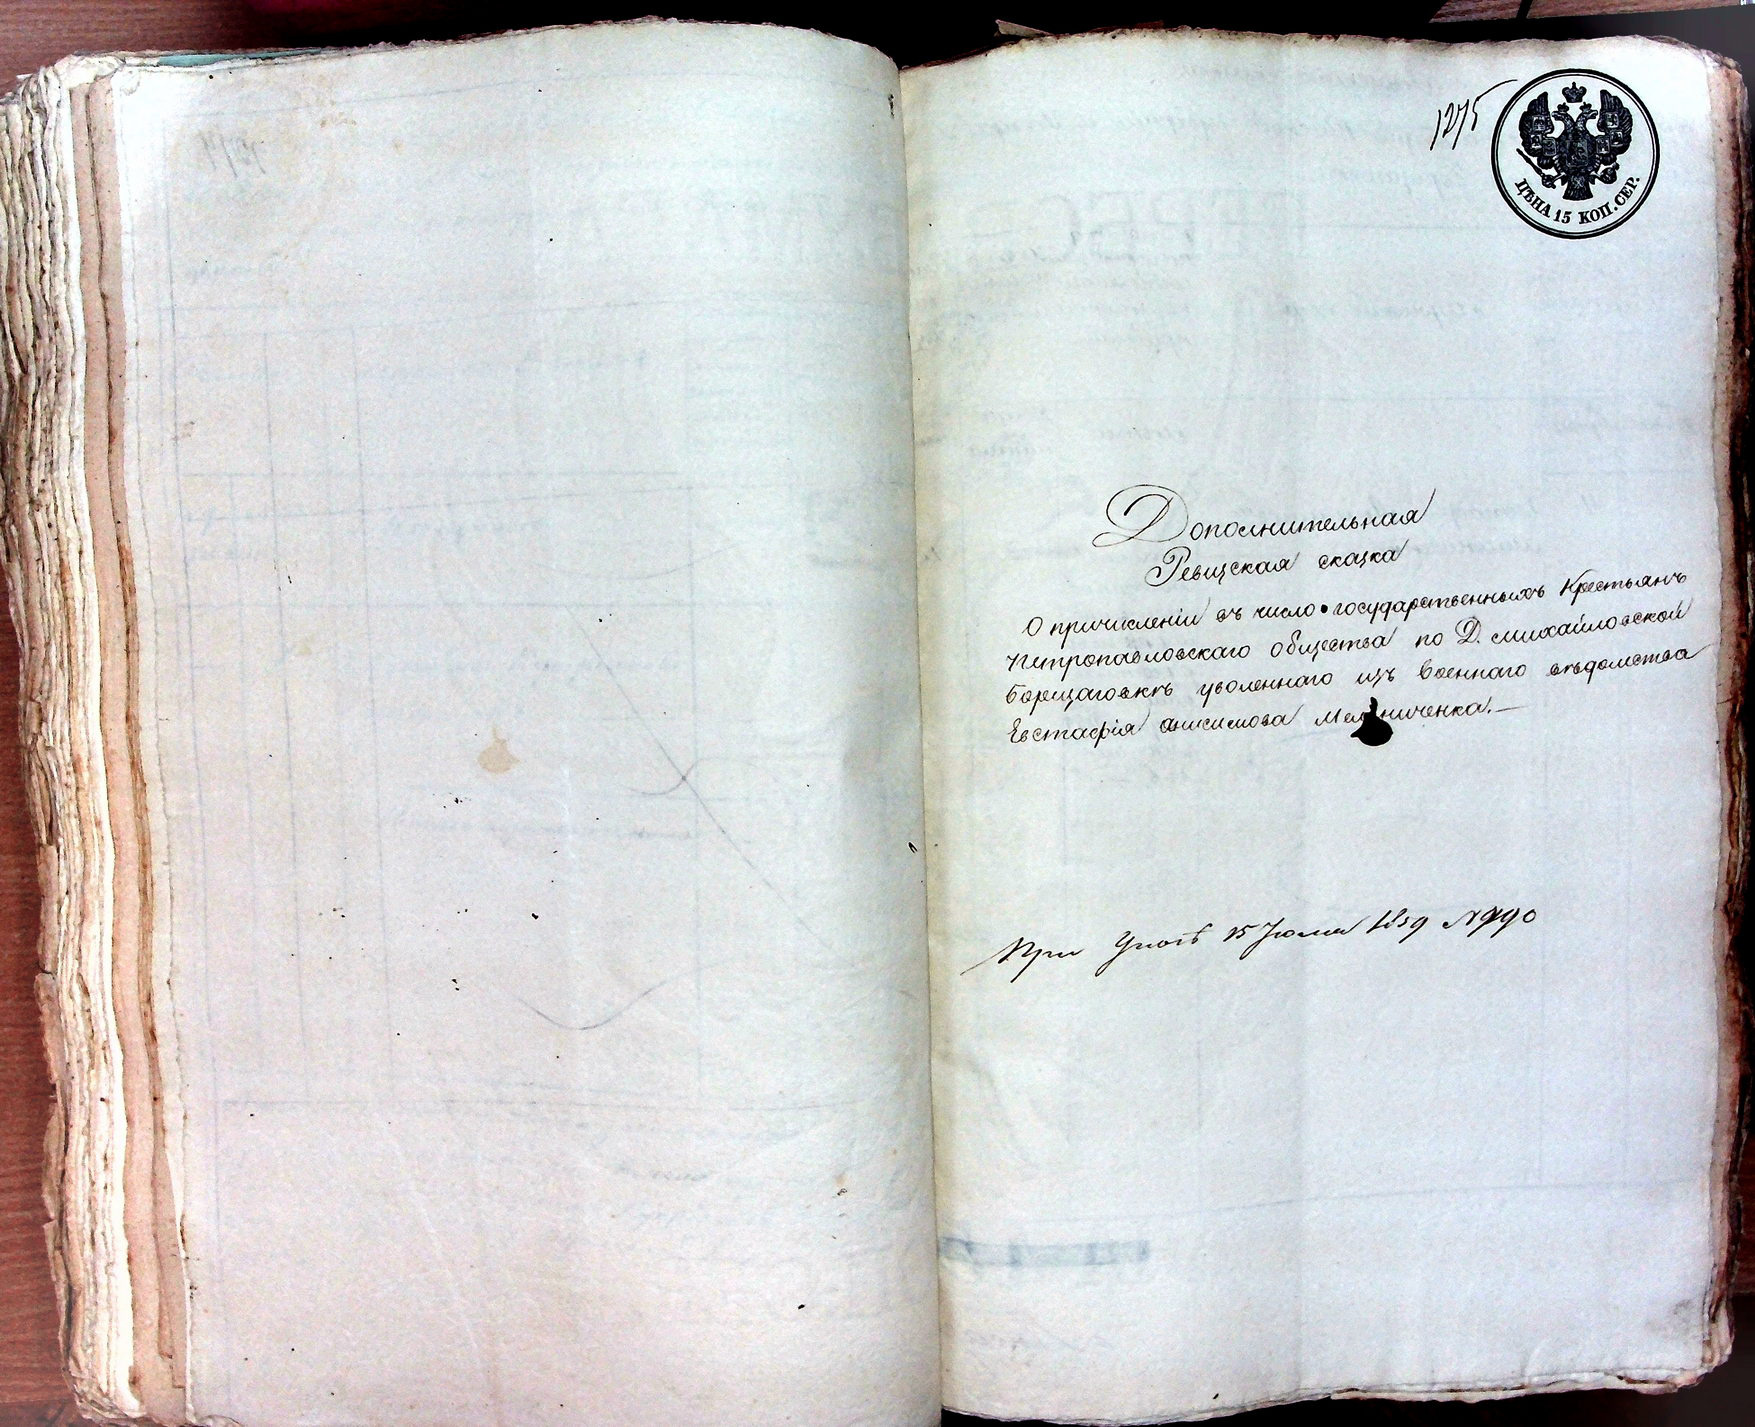 1275
ЦѢНА 15 КОП. СЕР.
Дополнительная
Ревизская сказка
О причисленіи въ число государственныхъ Крестьянъ
Петропавловскаго общества по Д. Михайловской
Борщаговкѣ уволеннаго изъ военнаго вѣдомства
Евстафія Анисимова Мельниченка.—
При 15 1859 №